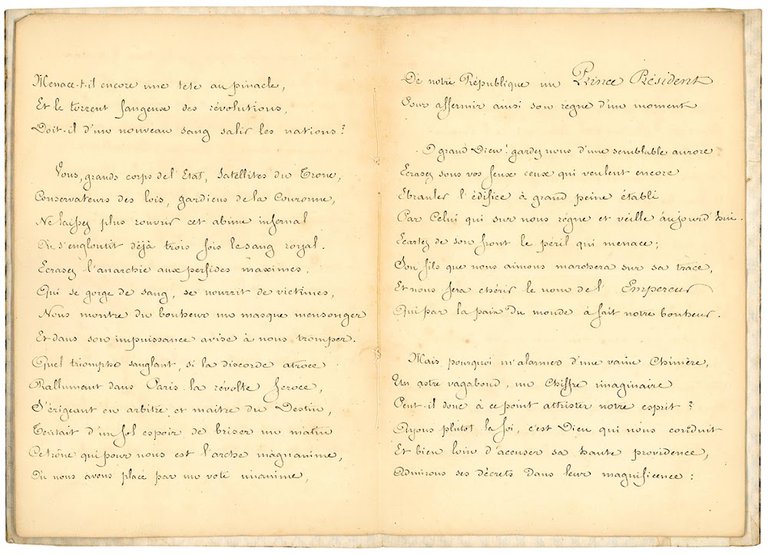 Menace-t-il encore une tête au pinacle,
Et le torrent fangeux des révolutions,
Doit-il d'un nouveau sang salir les nations?
Vous, grands corps de l'Etat, Satellites du Trone,
Conservateurs des lois, gardiens de la Couronne,
Ne laissez plus rouvrir cet abime infernal
Où s'engloutit déjà trois fois le sang royal.
Ecrasez l'anarchie aux perfides maximes.
Qui se gorge de sang, se nourrit de victimes,
Nous montre du bonheur un masque mensonger
Et dans son impuissance avise à nous tromper.
Quel triomphe sanglant, si la discorde atroce
Rallumant dans Paris la révolte féroce,
S'érigeant en arbitre et maitre du Destin,
Tentait d'un fol espoir de briser un matin
Ce trône qui pour nous est l'arche magnanime,
Où nous avons placé par un vote unanime,
De notre République un Prince Président
Pour affermir ainsi son règne d'un moment
O grand Dieu! gardez nous d'une semblable aurore
Ecrasez sous vos feux ceux qui veulent encore
Ebranler l'édifice à grand peine établi
Par Celui qui sur nous règne et veille aujourd'hui.
Ecartez de son front le péril qui menace;
Son fils que nous aimons marchera sur sa trace,
Et nous fera chérir le nom de l'Empereur
Qui par la paix du monde à fait notre bonheur.
Mais pourquoi m'alarmer d'une vaine Chimère,
Un astre vagabond, un Chiffre imaginaire
Peut-il donc à ce point attrister notre esprit?
Ayons plutot la foi, c'est Dieu qui nous conduit
Et bien loin d'accuser sa haute providence,
Admirons ses décrets dans leur magnificence: